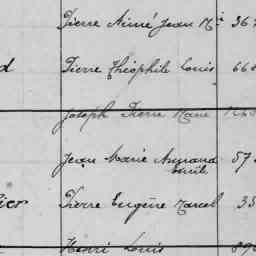 Pierre Aimé Jean M
d Pierre Théophile Louis 66
Joseph Pierre Marie
Jean Marie Armand 57
Emile
ier Pierre Eugène Marcel 35
Henri Louis